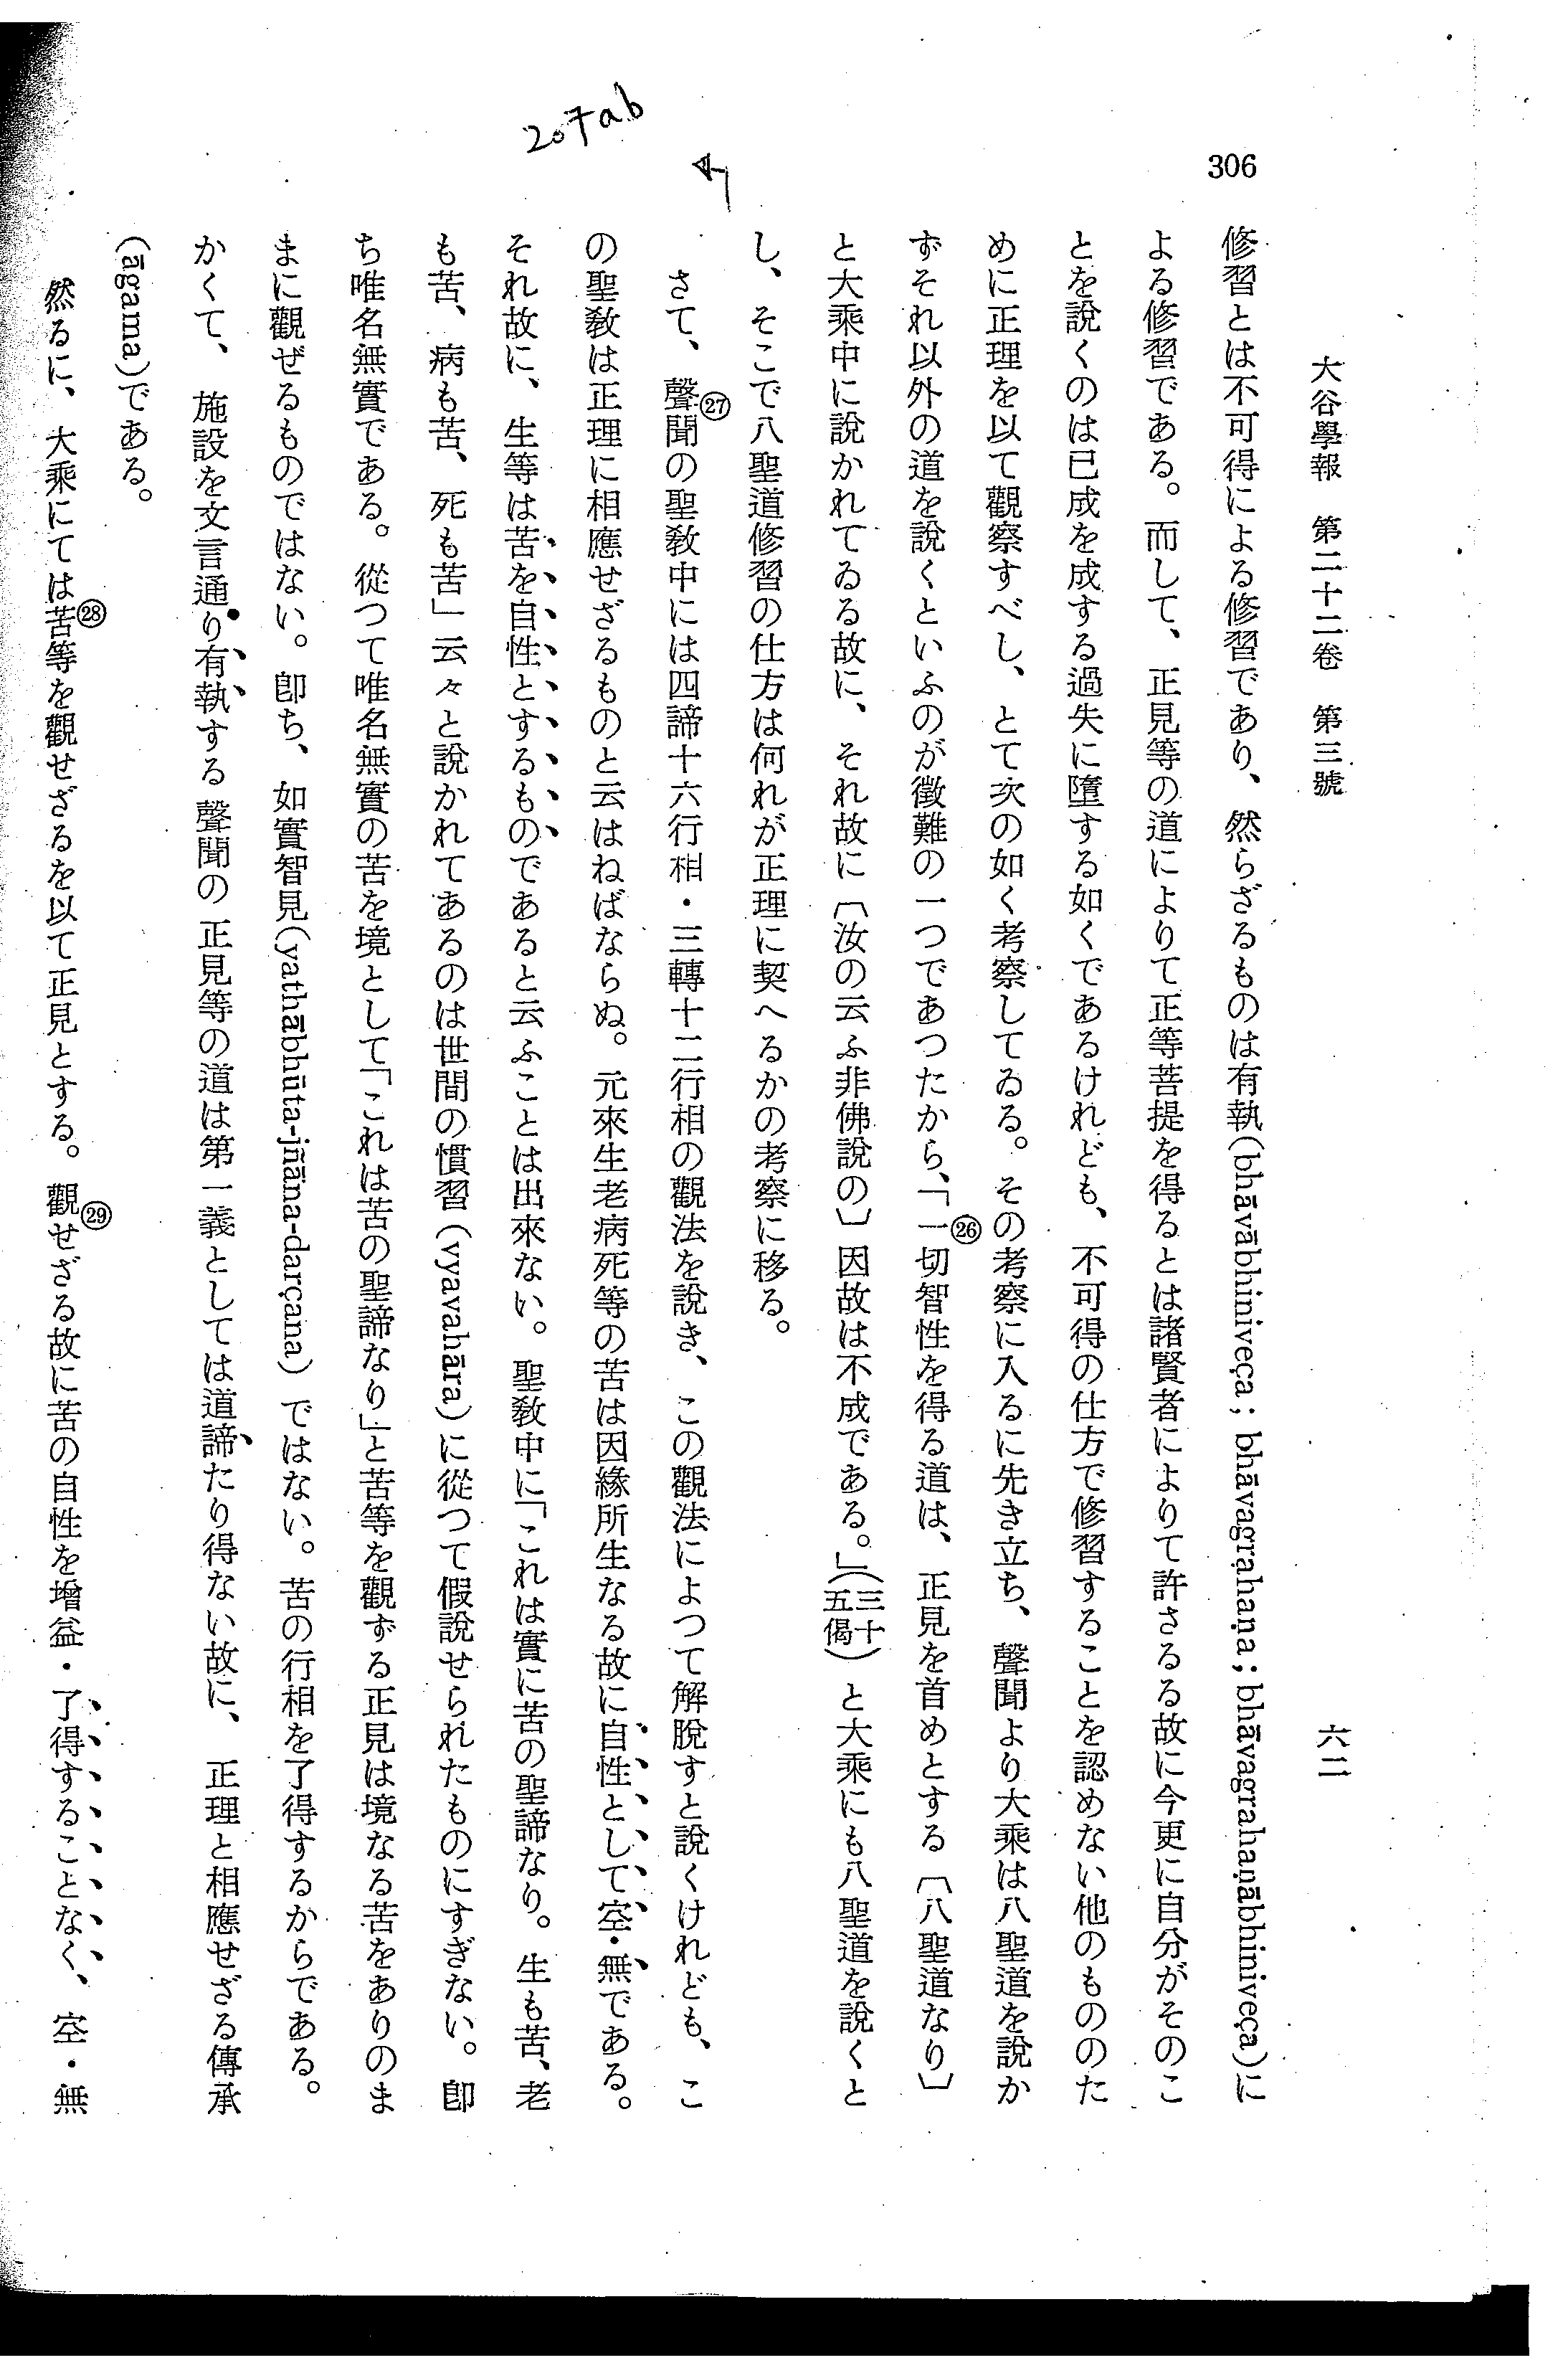 306
大谷學報　第二十二卷　第三號
六二
修習とは不可得による修習であり、然らざるものは有執(bhāvābhiniveça; bhāvagrahaṇa; bhāvagrahaṇābhiniveça)に
よる修習である。而して、正見等の道によりて正等菩提を得るとは諸賢者によりて許さるる故に今更に自分がそのこ
とを説くのは已成を成する過失に墮する如くであるけれども、不可得の仕方で修習することを認めない他のもののた
めに正理を以て觀察すべし、とて次の如く考察してゐる。その考察に入るに先き立ち、聲聞より大乘は八聖道を說か
ずそれ以外の道を說くといふのが徴難の一つであつたから、「一㉖切智性を得る道は、正見を首めとする〔八聖道なり〕
と大乘中に說かれてゐる故に、それ故に〔汝の云ふ非佛說の〕因故は不成である。」(三十五偈)と大乘にも八聖道を說くと
し、そこで八聖道修習の仕方は何れが正理に契へるかの考察に移る。
さて、聲㉗聞の聖教中には四諦十六行相・三轉十二行相の觀法を說き、この觀法によつて解脫すと說くけれども、こ
の聖教は正理に相應せざるものと云はねばならぬ。元來生老病死等の苦は因緣所生なる故に自性として空・無である。
それ故に、生等は苦を自性とするものであると云ふことは出來ない。聖教中に「これは實に苦の聖諦なり。生も苦、老
も苦、病も苦、死も苦」云々と說かれてあるのは世間の慣習(vyavahāra)に從つて假說せられたものにすぎない。卽
ち唯名無實である。從つて唯名無實の苦を境として「これは苦の聖諦なり」と苦等を觀ずる正見は境なる苦をありのま
まに觀ぜるものではない。卽ち、如實智見(yathābhūta-jñāna-darçana)ではない。苦の行相を了得するからである。
かくて、施設を文言通り有執する聲聞の正見等の道は第一義としては道諦たり得ない故に、正理と相應せざる傳承
(āgama)である。
然るに、大乘にては苦㉘等を觀せざるを以て正見とする。觀㉙せざる故に苦の自性を增益・了得することなく、空・無
207ab